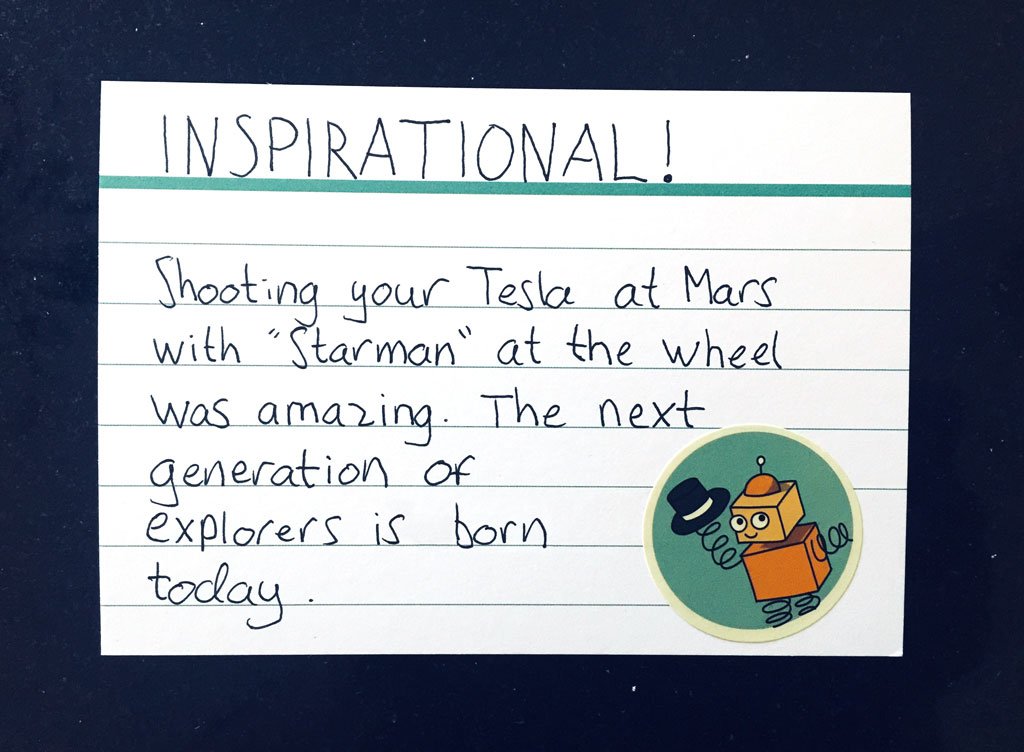 INSPIRATIONAL!
Shooting your Tesla at Mars
with "Starman" at the wheel
was amazing. The next
generation of
explorers is born
today.